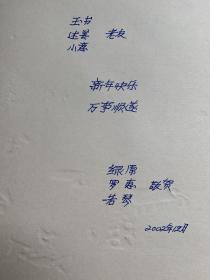 玉书
老友
新年快乐
万事顺遂
绿原
罗惠 敬贺
若琴
2002年12月